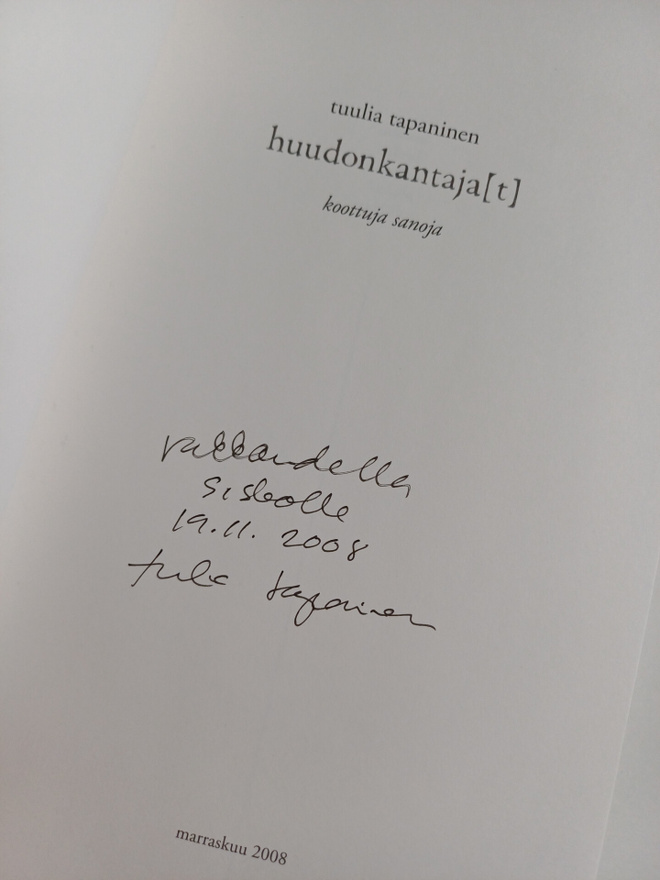 tuulia tapaninen
huudonkantaja[t]
koottuja sanoja
rakkaudella
siskolle
19.11. 2008
tuulia tapaninen
marraskuu 2008